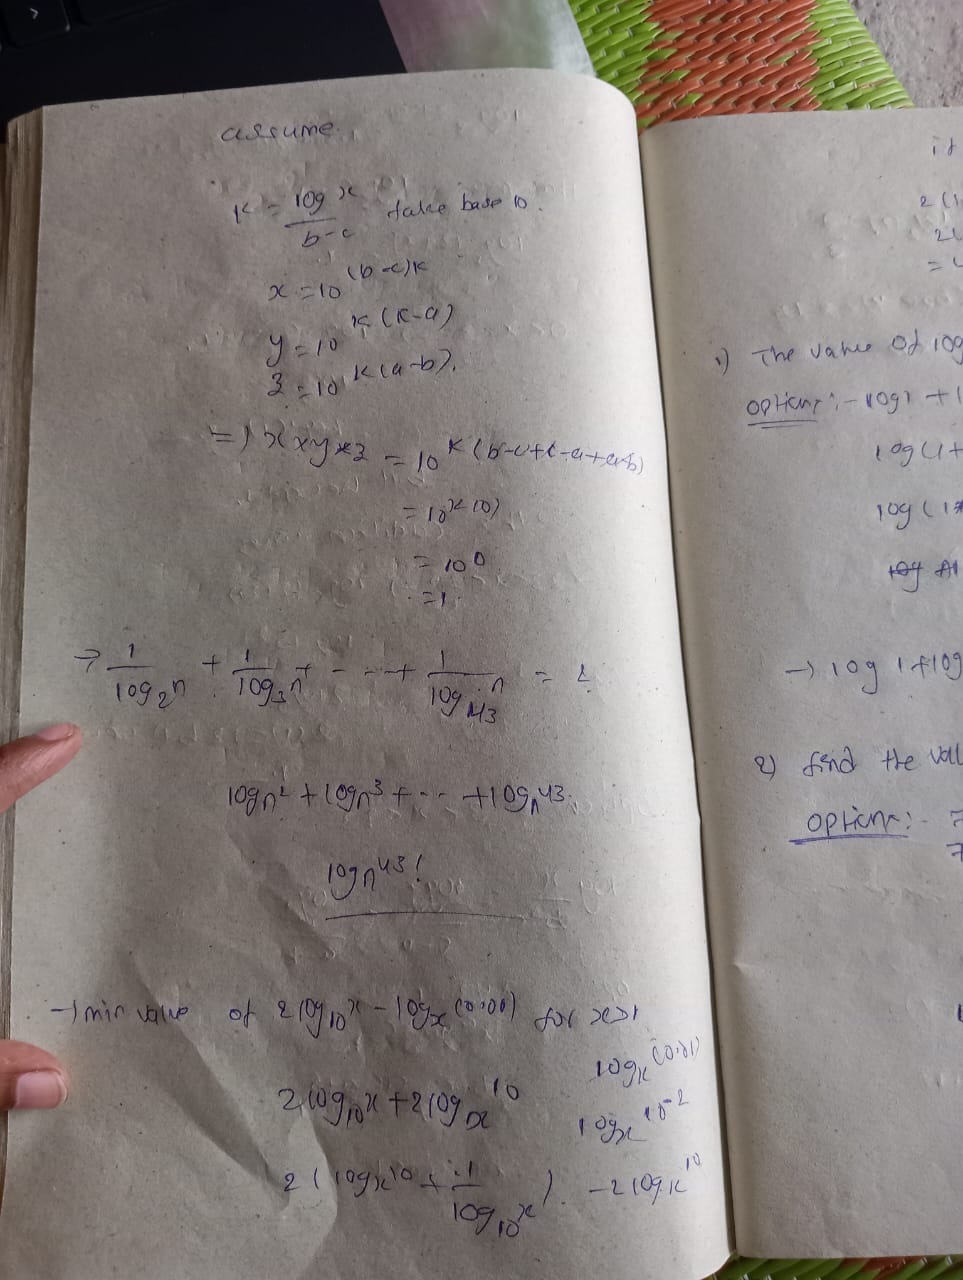 assume.
K = log x / b-c take base 10.
x = 10^(b-c)K
y = 10^K(K-a)
z = 10^K(a-b).
=) x x y x z = 10^K(b-c+c-a+a-b)
= 10^K(0)
= 10^0
= 1.
→ 1/log₂n + 1/log₃n + - - - + 1/log₄₃n = ?
logₙ2 + logₙ3 + - - - + logₙ43.
logₙ43!
→ min value of 2log₁₀x - logₓ(0.01) for x>1
logₓ(0.01)
2log₁₀x + 2logₓ10
logₓ10^-2
2(logₓ10 + 1/log₁₀x).
-2logₓ10
2(1
= 4
1) The value of log
option:- log1 + 1
log(1+
log(1
→ log 1 + log
2) find the val
option:- 7
7